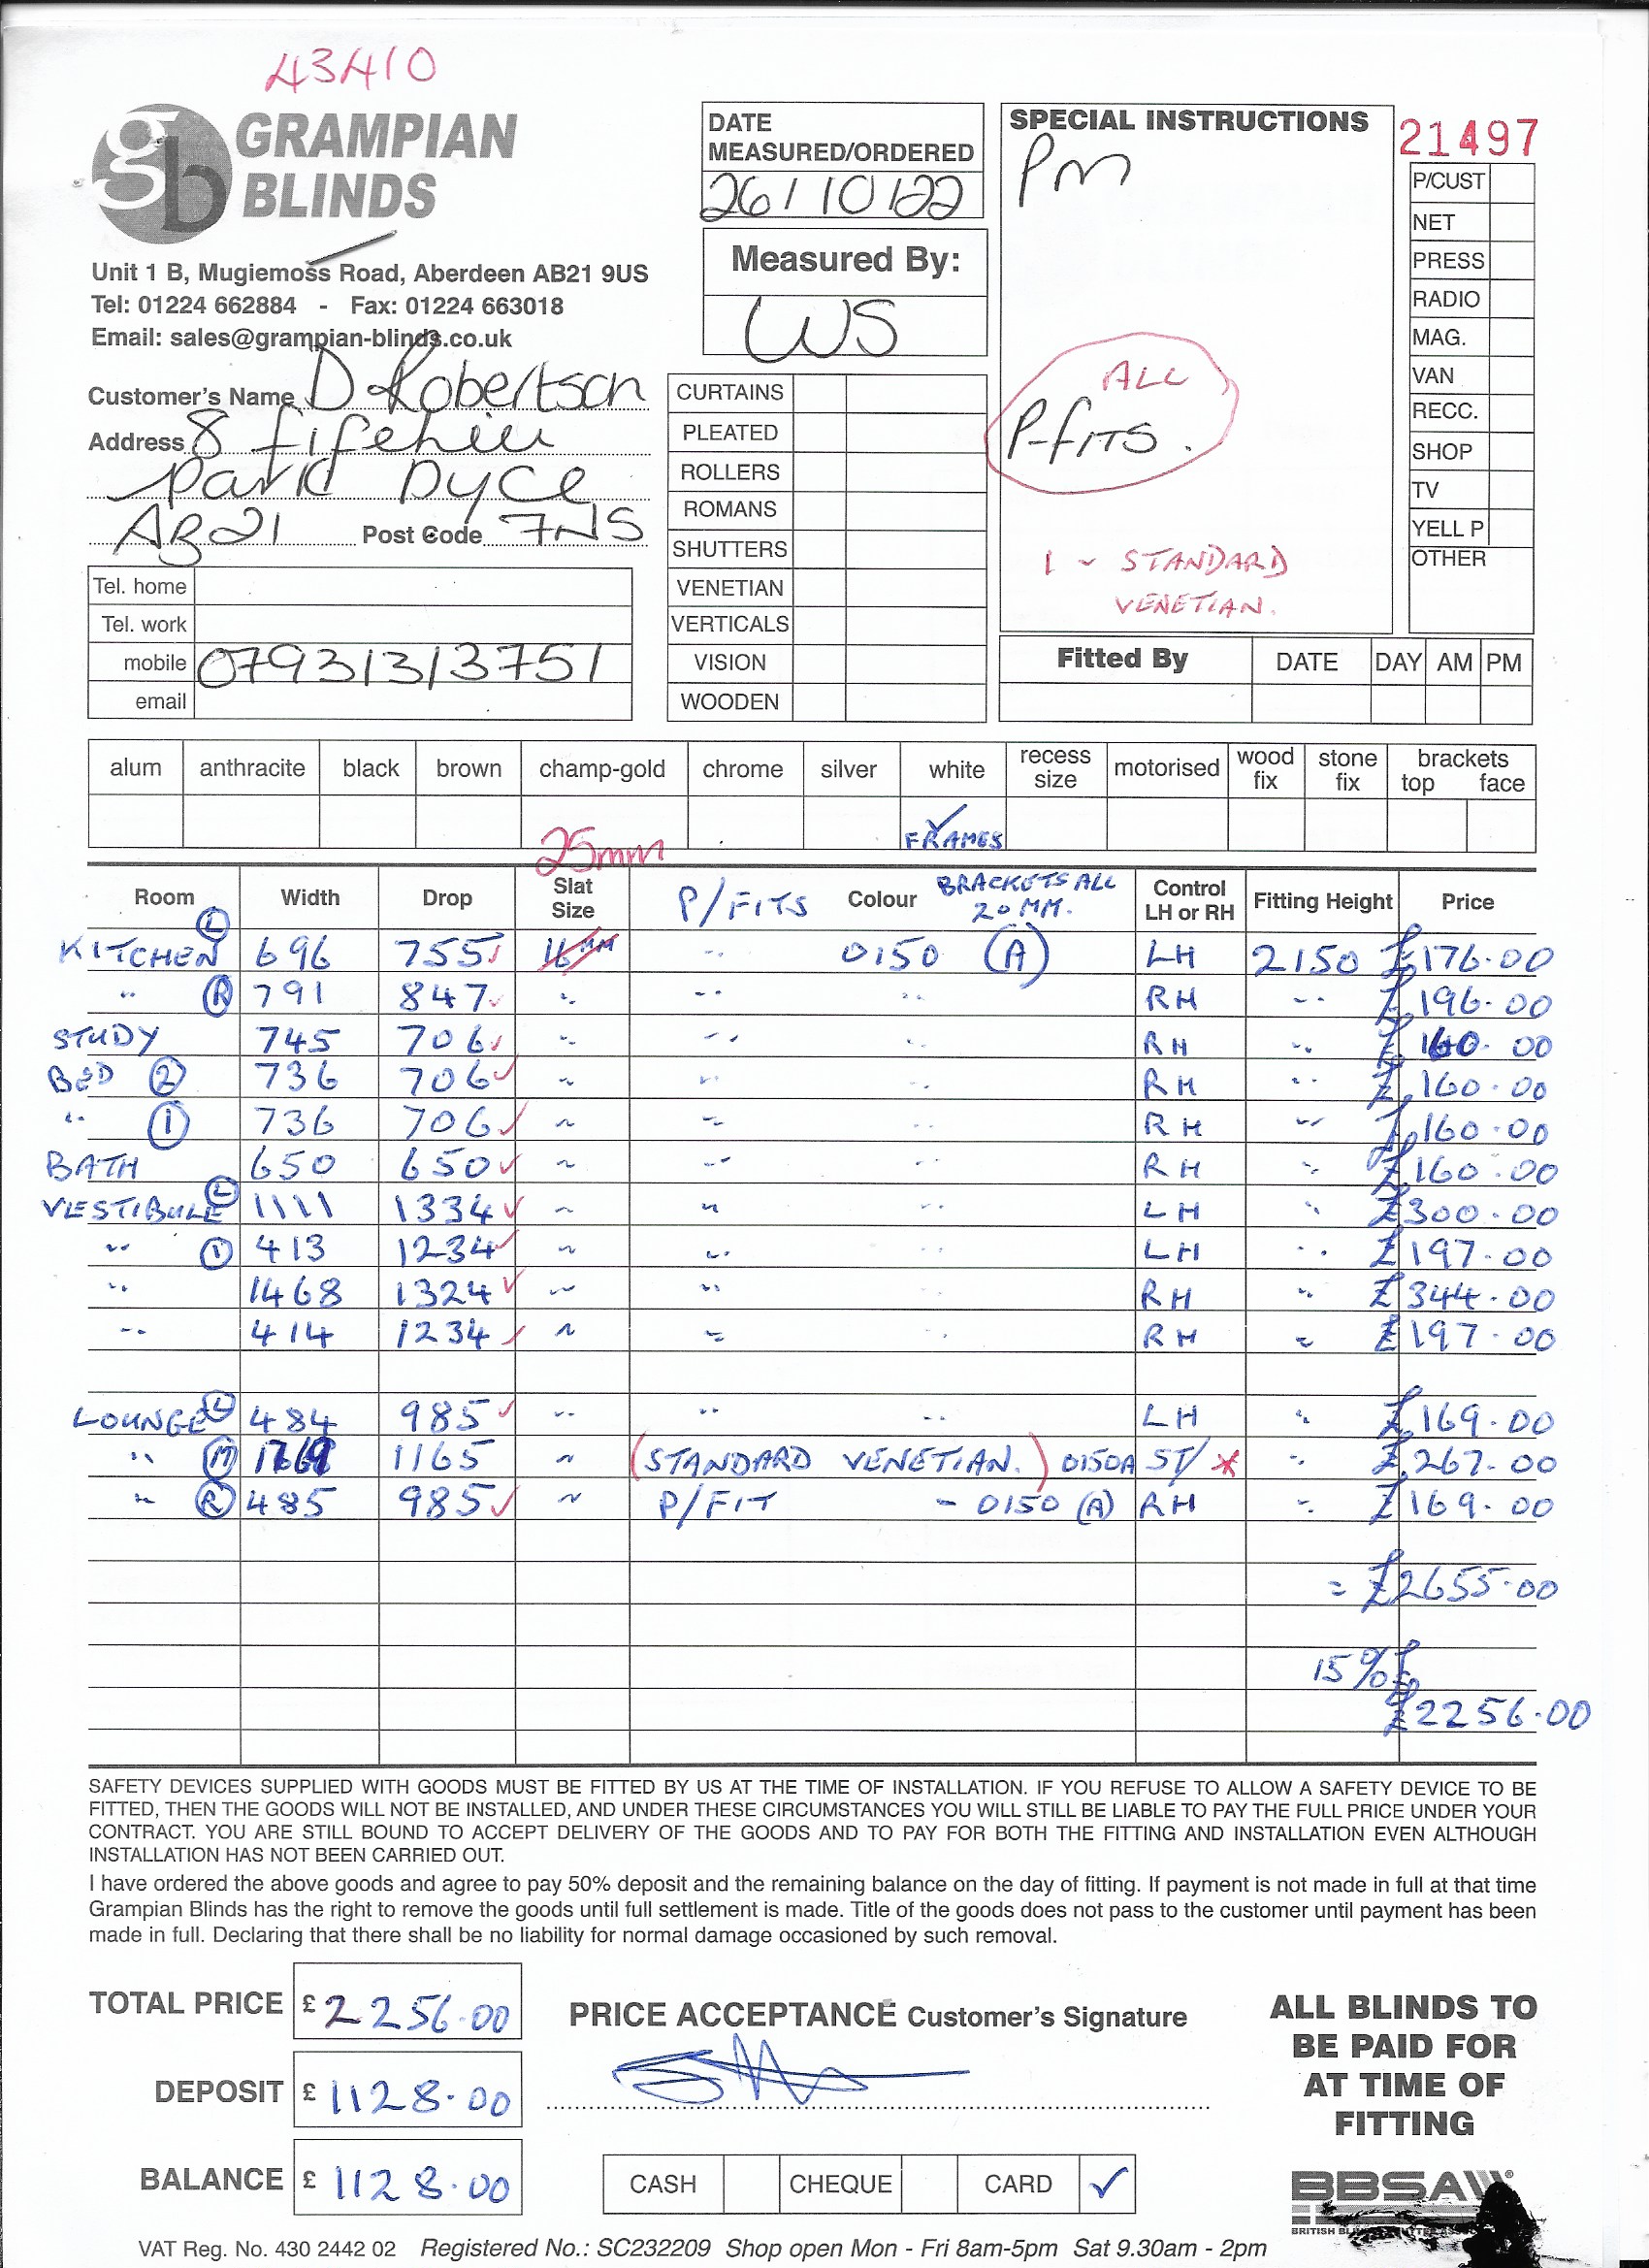 43410
GRAMPIAN
BLINDS
Unit 1 B, Mugiemoss Road, Aberdeen AB21 9US
Tel: 01224 662884 - Fax: 01224 663018
Email: sales@grampian-blinds.co.uk
Customer's Name D Robertson
Address 8 Fifehill
Park Dyce
AB21 Post Code 7NS
Tel. home
Tel. work
mobile 07931313751
email
DATE
MEASURED/ORDERED
26/10/22
Measured By:
WS
CURTAINS
PLEATED
ROLLERS
ROMANS
SHUTTERS
VENETIAN
VERTICALS
VISION
WOODEN
SPECIAL INSTRUCTIONS
PM
ALL
P-FITS.
1 - STANDARD
VENETIAN.
21497
P/CUST
NET
PRESS
RADIO
MAG.
VAN
RECC.
SHOP
TV
YELL P
OTHER
Fitted By DATE DAY AM PM
alum anthracite black brown champ-gold chrome silver white recess size motorised wood fix stone fix brackets top face
✓ FRAMES
25mm
Room Width Drop Slat Size P/FITS Colour BRACKETS ALL 20MM. Control LH or RH Fitting Height Price
KITCHEN (L) 696 755 16mm " 0150 (A) LH 2150 £176.00
" (R) 791 847 " " " RH " £196.00
STUDY 745 706 " " " RH " £160.00
BED (2) 736 706 " " " RH " £160.00
" (1) 736 706 " " " RH " £160.00
BATH 650 650 " " " RH " £160.00
VESTIBULE (L) 1111 1334 " " " LH " £300.00
" (1) 413 1234 " " " LH " £197.00
" 1468 1324 " " " RH " £344.00
" 414 1234 " " " RH " £197.00
LOUNGE (L) 484 985 " " " LH " £169.00
" (M) 1165 " (STANDARD VENETIAN.) 0150A ST/ * " £267.00
" (R) 485 985 " P/FIT - 0150 (A) RH " £169.00
= £2655.00
15% £
£2256.00
SAFETY DEVICES SUPPLIED WITH GOODS MUST BE FITTED BY US AT THE TIME OF INSTALLATION. IF YOU REFUSE TO ALLOW A SAFETY DEVICE TO BE
FITTED, THEN THE GOODS WILL NOT BE INSTALLED, AND UNDER THESE CIRCUMSTANCES YOU WILL STILL BE LIABLE TO PAY THE FULL PRICE UNDER YOUR
CONTRACT. YOU ARE STILL BOUND TO ACCEPT DELIVERY OF THE GOODS AND TO PAY FOR BOTH THE FITTING AND INSTALLATION EVEN ALTHOUGH
INSTALLATION HAS NOT BEEN CARRIED OUT.
I have ordered the above goods and agree to pay 50% deposit and the remaining balance on the day of fitting. If payment is not made in full at that time
Grampian Blinds has the right to remove the goods until full settlement is made. Title of the goods does not pass to the customer until payment has been
made in full. Declaring that there shall be no liability for normal damage occasioned by such removal.
TOTAL PRICE £2256.00
DEPOSIT £1128.00
BALANCE £1128.00
PRICE ACCEPTANCE Customer's Signature
CASH CHEQUE CARD ✓
ALL BLINDS TO
BE PAID FOR
AT TIME OF
FITTING
BBSA
VAT Reg. No. 430 2442 02 Registered No.: SC232209 Shop open Mon - Fri 8am-5pm Sat 9.30am - 2pm